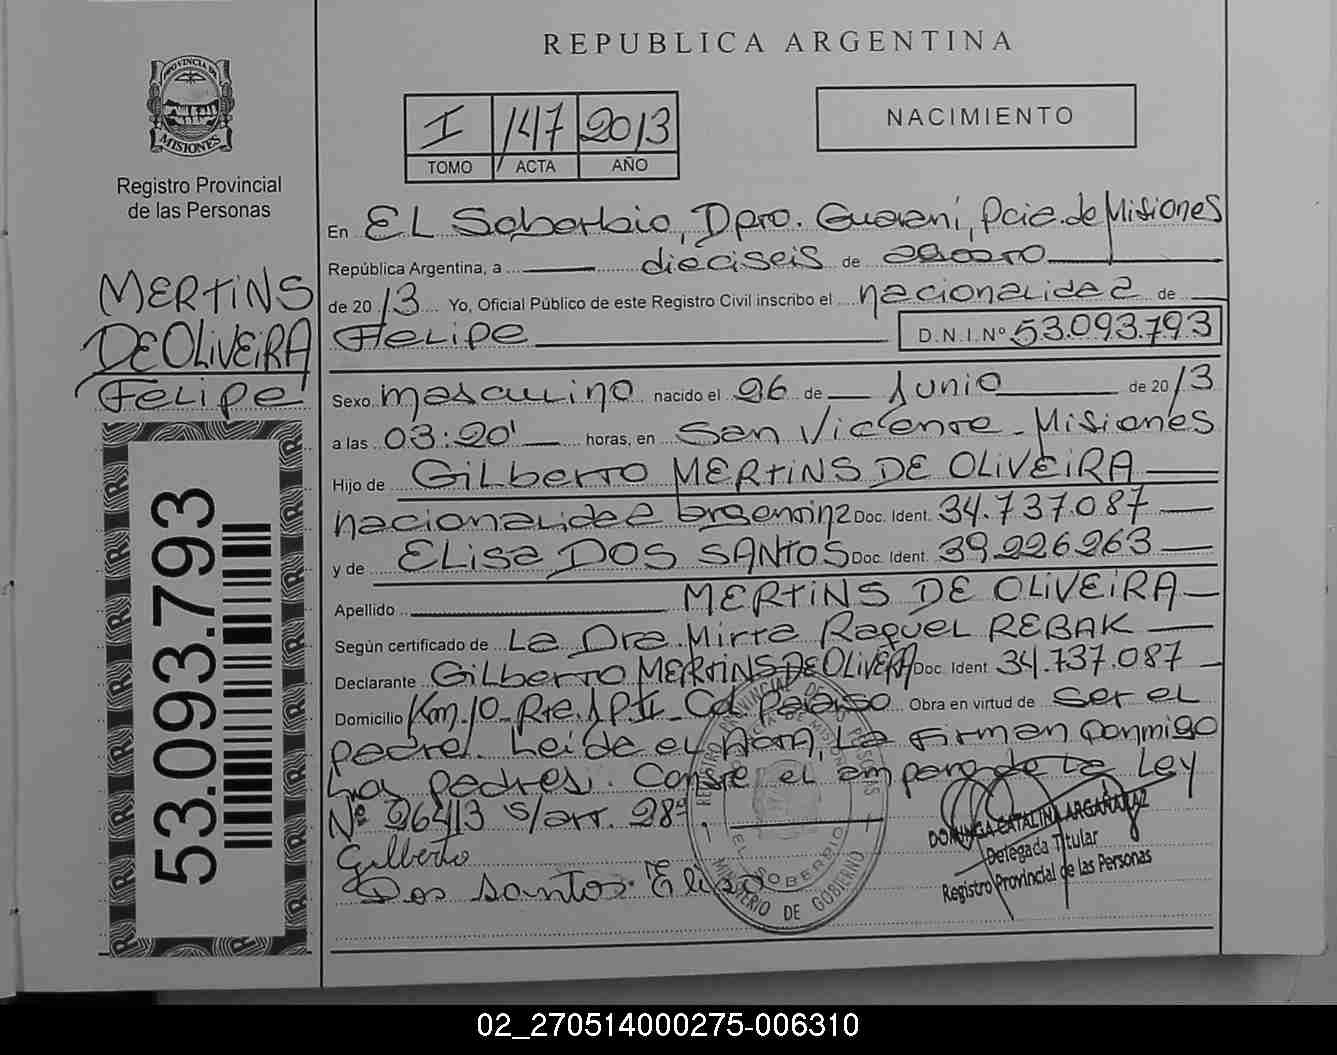 REPUBLICA ARGENTINA
PROVINCIA DE
MISIONES
Registro Provincial
de las Personas
I 147 2013
TOMO ACTA AÑO
NACIMIENTO
MERTINS
DE OLIVEIRA
Felipe
53.093.793
En EL Soberbio, Dpto. Guaraní, Pcia. de Misiones
República Argentina, a dieciseis de agosto
de 2013 Yo, Oficial Público de este Registro Civil inscribo el nacionalidad de
Felipe D.N.I.Nº 53.093.793
Sexo masculino nacido el 26 de Junio de 2013
a las 03:20' horas, en San Vicente - Misiones
Hijo de Gilberto MERTINS DE OLIVEIRA
nacionalidad argentina Doc. Ident. 34.737.087
y de Elisa DOS SANTOS Doc. Ident. 39.226.263
Apellido MERTINS DE OLIVEIRA
Según certificado de La Dra Mirta Raquel REBAK
Declarante Gilberto MERTINS DE OLIVERA Doc. Ident. 34.737.087
Domicilio Km. 10 Cd. Paraiso Obra en virtud de ser el
padre. Leida el La firman conmigo
los padres. Conste el amparo de La Ley
Nº 26413 s/art. 28º
Gilberto
Dos Santos Elisa
REGISTRO PROVINCIAL DE LAS PERSONAS
EL SOBERBIO
MINISTERIO DE GOBIERNO
DOMINGA CATALINA ARGAÑARAZ
Delegada Titular
Registro Provincial de las Personas
02_270514000275-006310